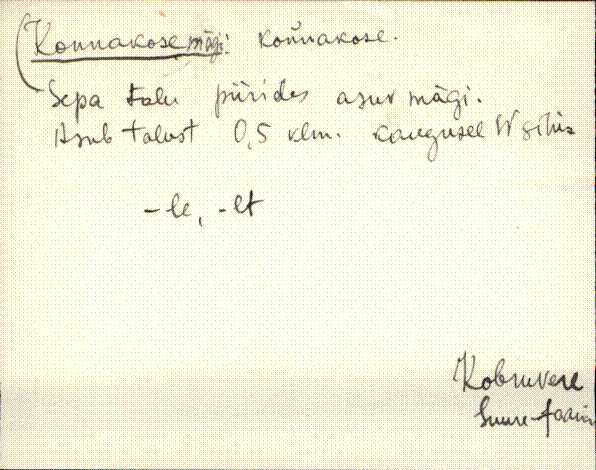 Konnakose mägi: koňnakose.
Sepa talu piirides asuv mägi.
Asub talust 0,5 klm. kaugusel W sihis
-le, -lt
Kobruvere
Suure-Jaani